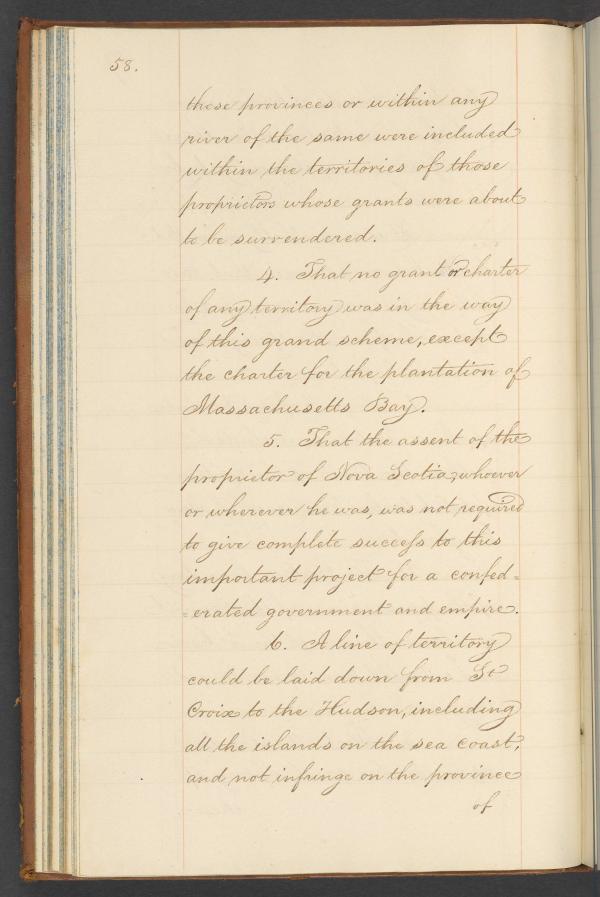 58.
these provinces or within any
river of the same were included
within the territories of those
proprietors whose grants were about
to be surrendered.
4. That no grant or charter
of any territory was in the way
of this grand scheme, except
the charter for the plantation of
Massachusetts Bay.
5. That the assent of the
proprietor of Nova Scotia, whoever
or wherever he was, was not required
to give complete success to this
important project for a confed=
=erated government and empire.
6. A line of territory
could be laid down from St
Croix to the Hudson, including
all the islands on the sea coast,
and not infringe on the province
of